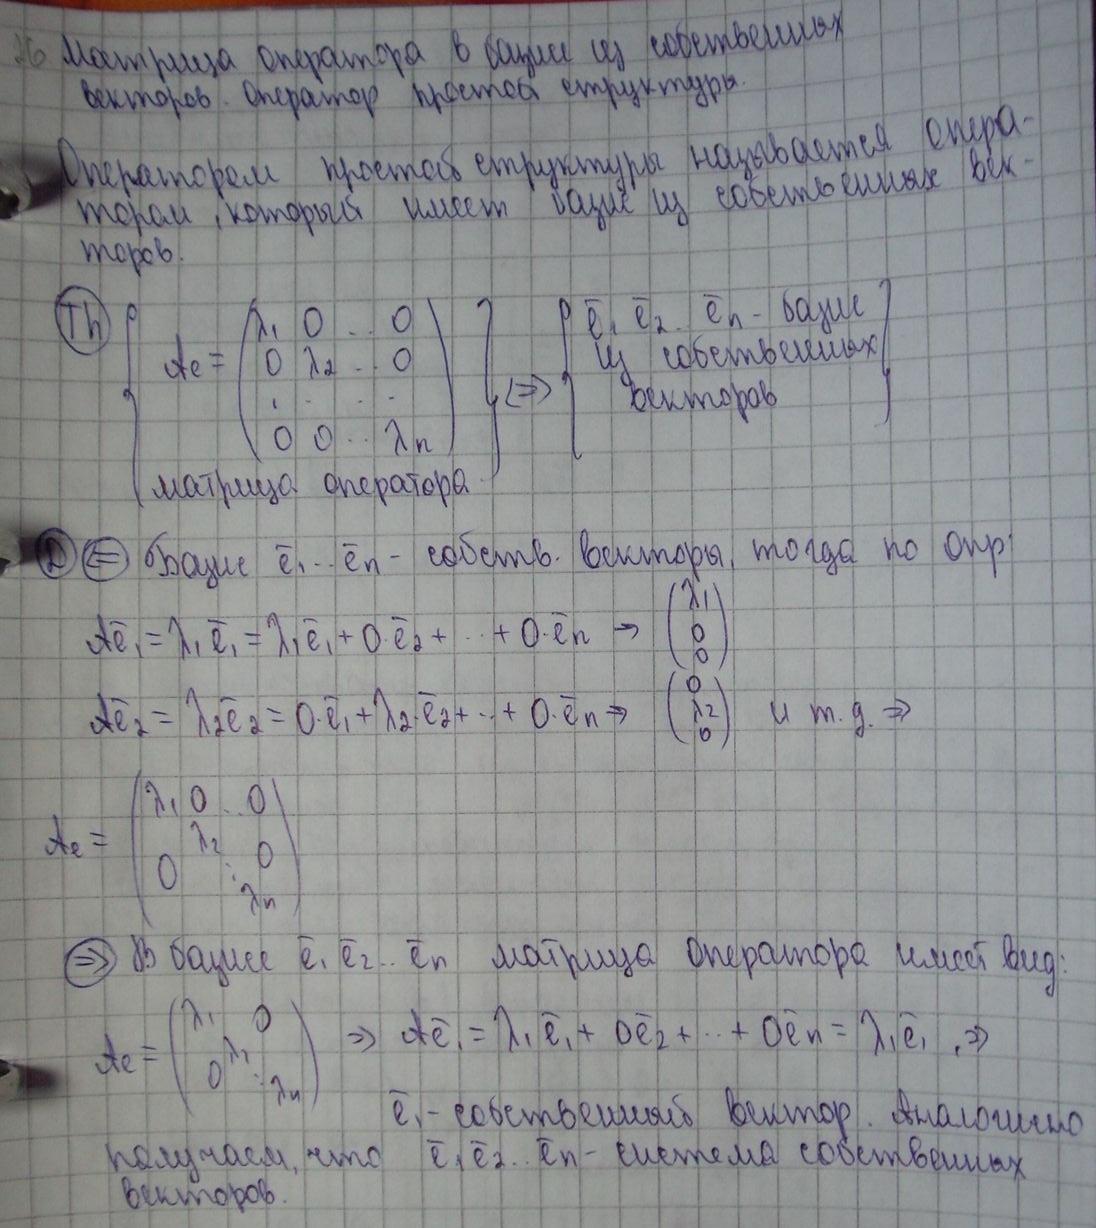 26 Матрица оператора в базисе из собственных
векторов. Оператор простой структуры.
Оператором простой структуры называется опера-
тором, который имеет базис из собственных век-
торов.
Th { Ae = (λ₁ 0 .. 0 } <=> { ē₁ ē₂ .. ēn - базис
0 λ₂ .. 0 из собственных
. . . . векторов }
0 0 .. λn)
матрица оператора
D <= Базис ē₁ .. ēn - собств. векторы, тогда по опр
Aē₁ = λ₁ē₁ = λ₁ē₁ + 0·ē₂ + .. + 0·ēn => (λ₁ 0 0)
Aē₂ = λ₂ē₂ = 0·ē₁ + λ₂·ē₂ + .. + 0·ēn => (0 λ₂ 0) и т.д. =>
Ae = (λ₁ 0 .. 0
λ₂
0 . 0
λn)
=> В базисе ē₁ ē₂ .. ēn матрица оператора имеет вид:
Ae = (λ₁ 0
0 λ₁ . λn) => Aē₁ = λ₁ē₁ + 0ē₂ + .. + 0ēn = λ₁ē₁, =>
ē₁ - собственный вектор. Аналогично
получаем, что ē₁ ē₂ .. ēn - система собственных
векторов.